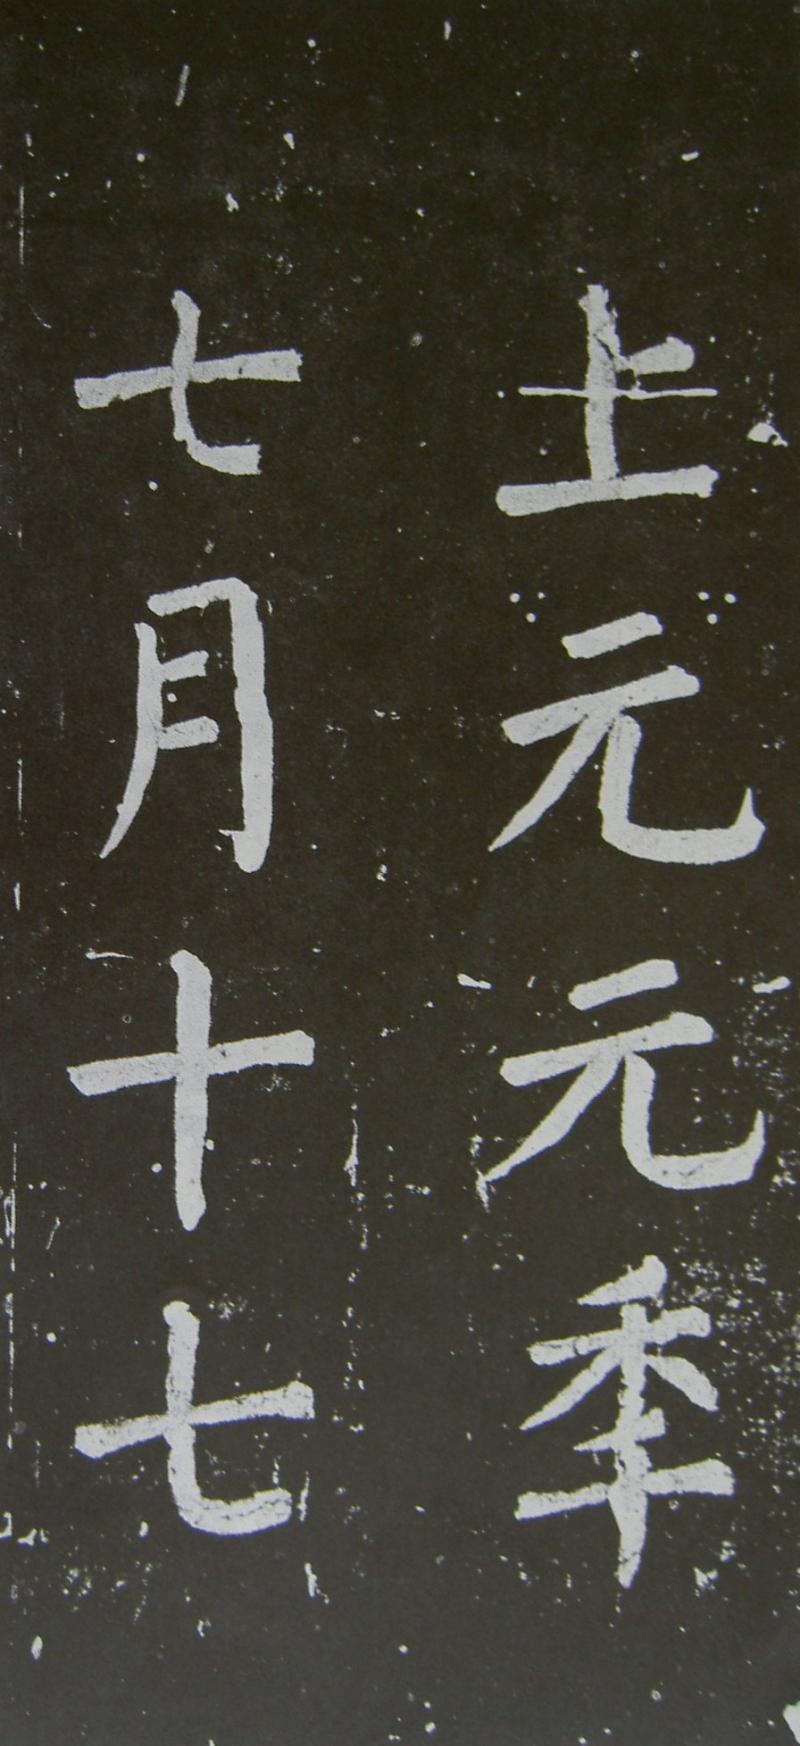 上元元秊
七月十七